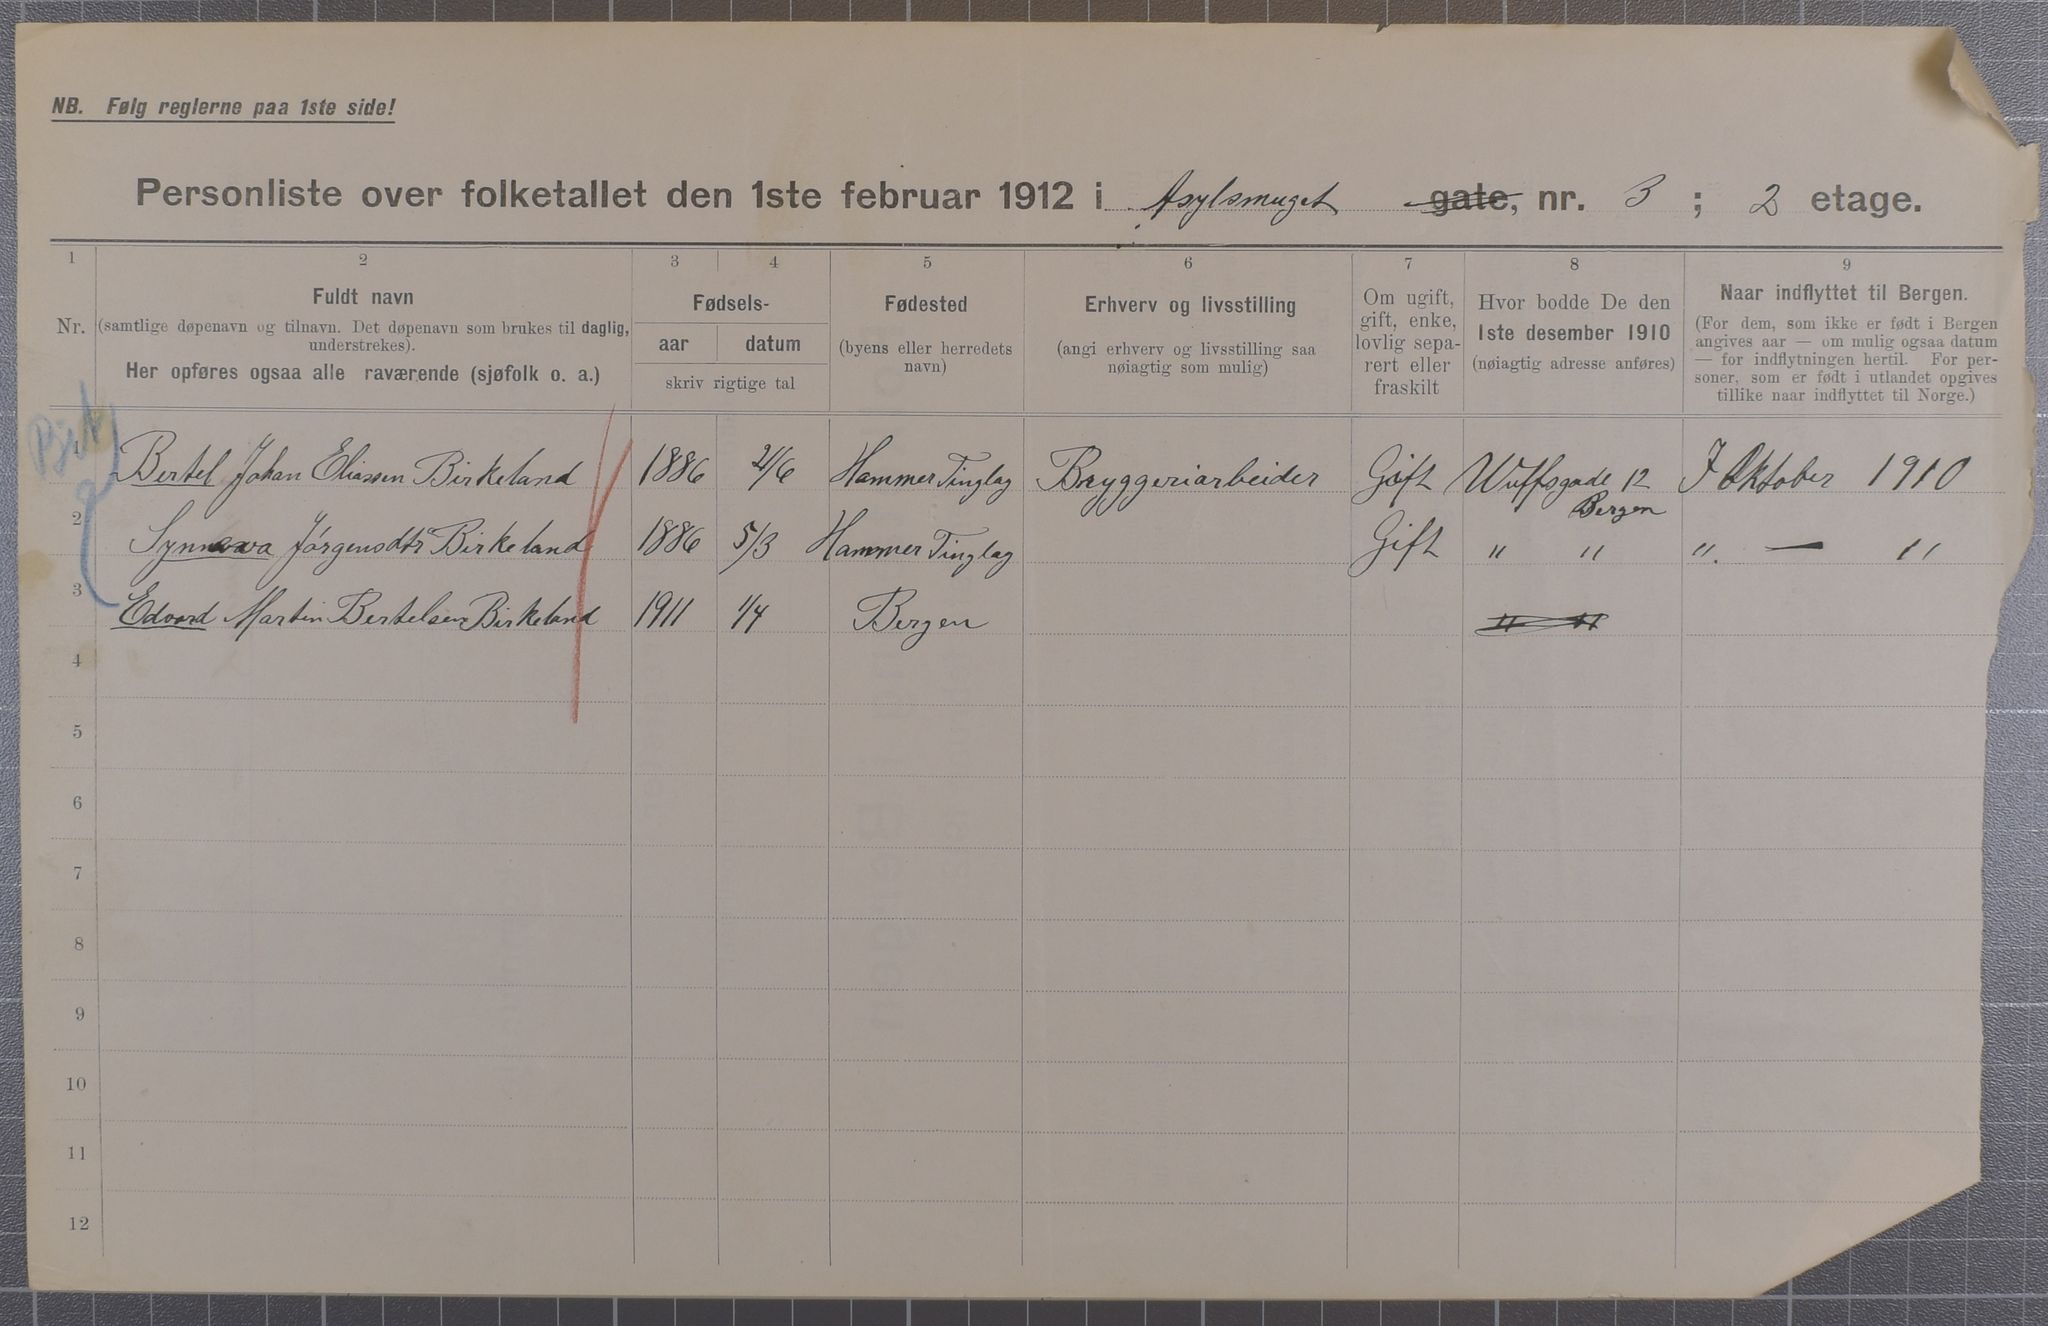 NB. Følg reglerne paa 1ste side!
Personliste over folketallet den 1ste februar 1912 i Asylsmuget gate, nr. 3 ; 2 etage.
1 2 3 4 5 6 7 8 9
Nr.
Fuldt navn
(samtlige døpenavn og tilnavn. Det døpenavn som brukes til daglig,
understrekes).
Her opføres ogsaa alle raværende (sjøfolk o. a.)
Fødsels-
aar datum
skriv rigtige tal
Fødested
(byens eller herredets
navn)
Erhverv og livsstilling
(angi erhverv og livsstilling saa
nøiagtig som mulig)
Om ugift,
gift, enke,
lovlig sepa-
rert eller
fraskilt
Hvor bodde De den
1ste desember 1910
(nøiagtig adresse anføres)
Naar indflyttet til Bergen.
(For dem, som ikke er født i Bergen
angives aar — om mulig ogsaa datum
— for indflytningen hertil. For per-
soner, som er født i utlandet opgives
tillike naar indflyttet til Norge.)
1 Bertel Johan Eliassen Birkeland 1886 2/6 Hammer Tinglag Bryggeriarbeider Gift Wulfsgade 12 I Oktober 1910
Bergen
2 Synneva Jørgensdtr Birkeland 1886 5/3 Hammer Tinglag Gift " " " — "
3 Edvard Martin Bertelsen Birkeland 1911 1/4 Bergen " "
4
5
6
7
8
9
10
11
12